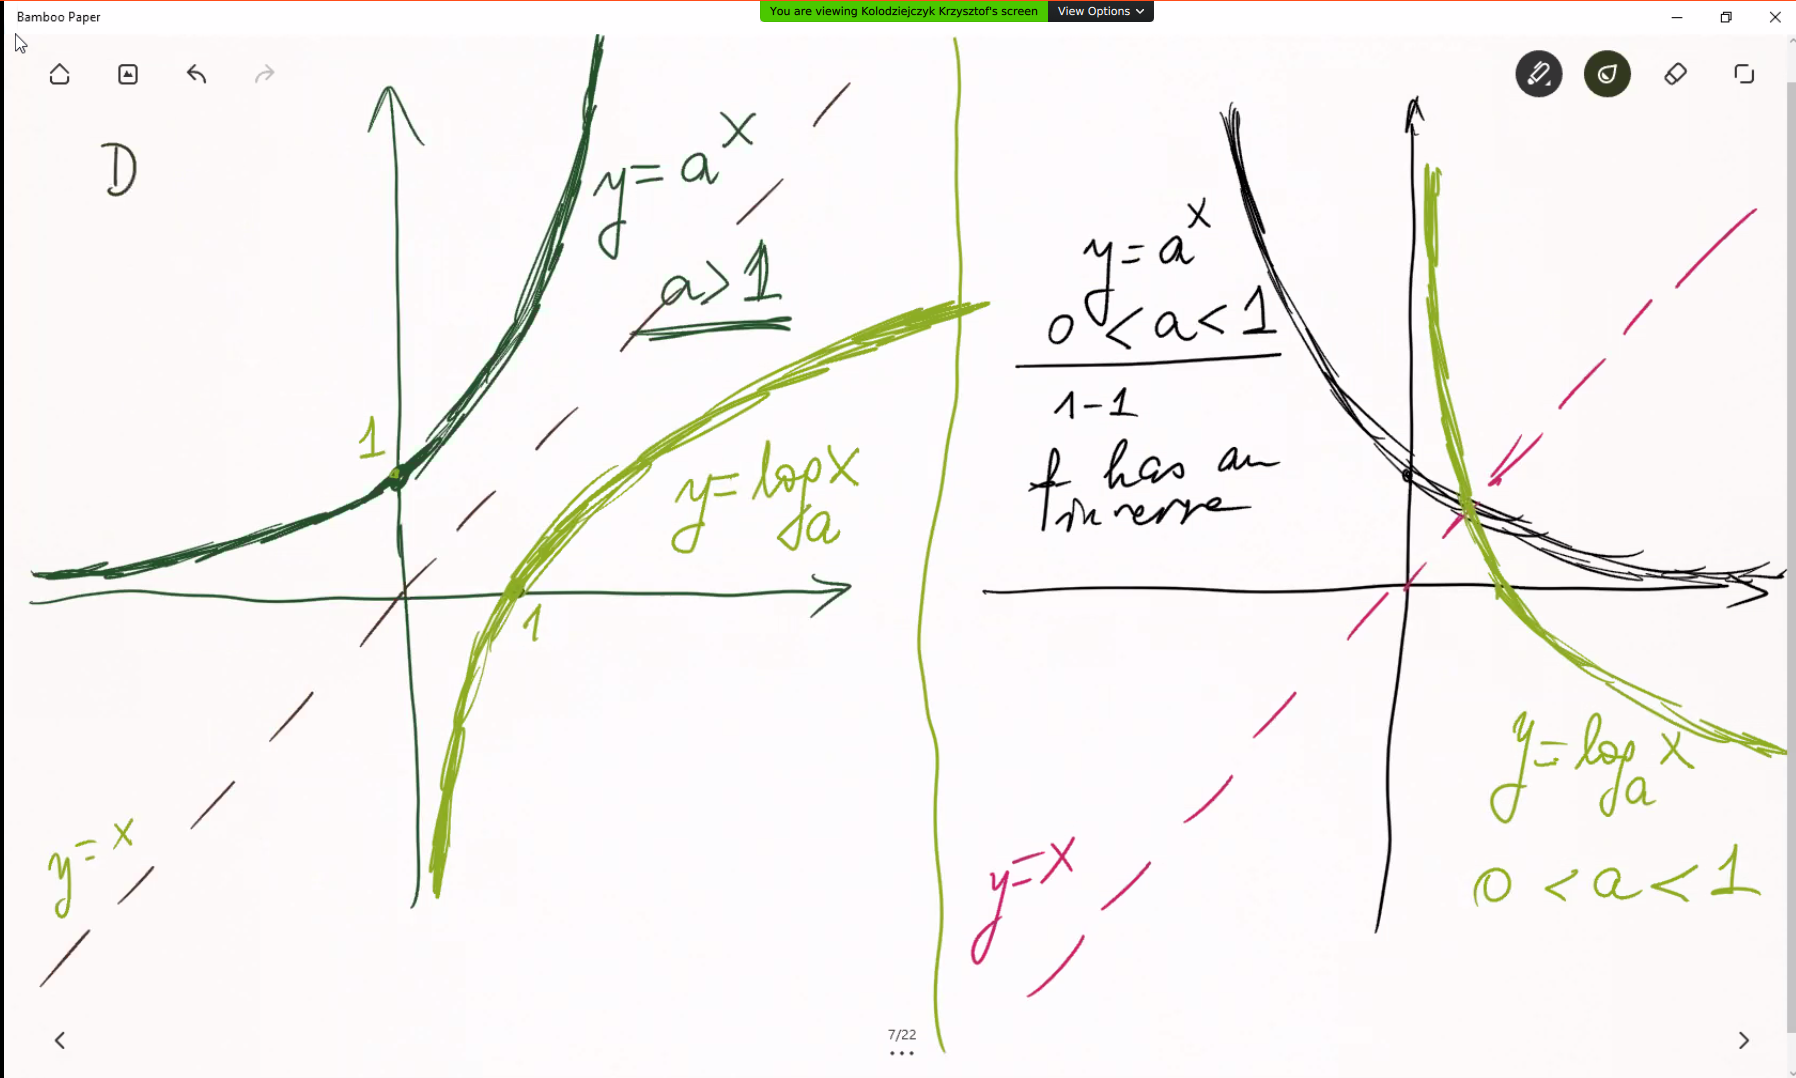 Bamboo Paper
You are viewing Kolodziejczyk Krzysztof's screen
View Options
D
y = a^x
a > 1
1
y = log_a x
1
y = x
y = a^x
0 < a < 1
1-1
f has an
inverse
y = log_a x
0 < a < 1
y = x
7/22